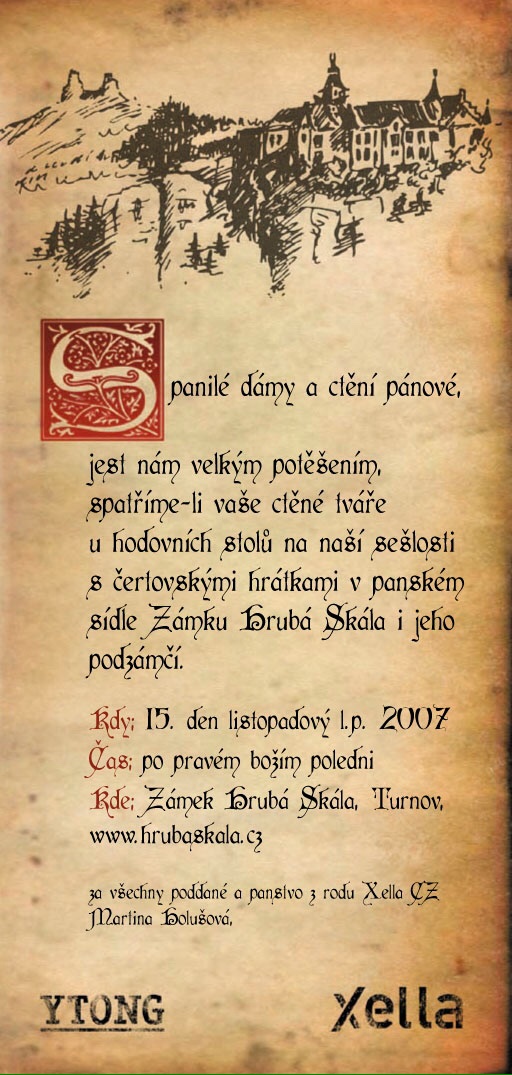 Spanilé dámy a ctění pánové,
jest nám velkým potěšením,
spatříme-li vaše ctěné tváře
u hodovních stolů na naší sešlosti
s čertovskými hrátkami v panském
sídle Zámku Hrubá Skála i jeho
podzámčí.
Kdy: 15. den listopadový l.p. 2007
Čas: po pravém božím poledni
Kde: Zámek Hrubá Skála, Turnov,
www.hrubaskala.cz
za všechny poddané a panstvo z rodu Xella CZ
Martina Holušová,
YTONG
xella